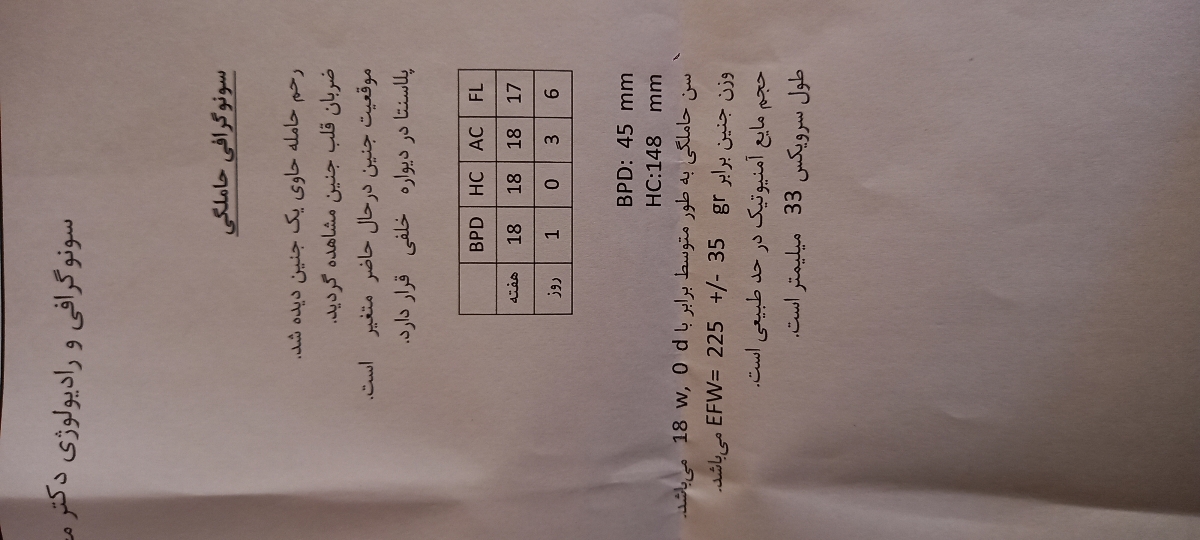 سونوگرافی و رادیولوژی دکتر
سونوگرافی حاملگی
رحم حامله حاوی یک جنین دیده شد.
ضربان قلب جنین مشاهده گردید.
موقعیت جنین درحال حاضر متغیر است.
پلاسنتا در دیواره خلفی قرار دارد.
BPD HC AC FL
هفته 18 18 18 17
روز 1 0 3 6
BPD: 45 mm
HC:148 mm
سن حاملگی به طور متوسط برابر با 18 w, 0 d می‌باشد.
وزن جنین برابر EFW= 225 +/- 35 gr می‌باشد.
حجم مایع آمنیوتیک در حد طبیعی است.
طول سرویکس 33 میلیمتر است.